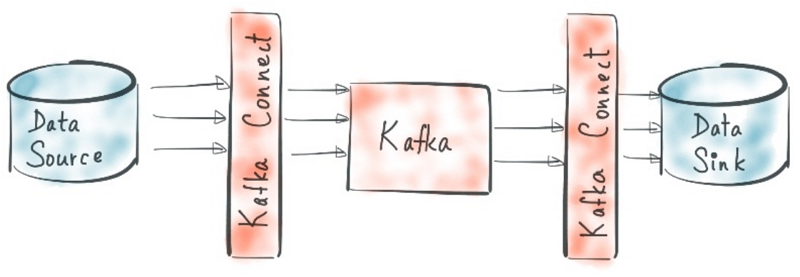 Data
Source
Kafka Connect
Kafka
Kafka Connect
Data
Sink